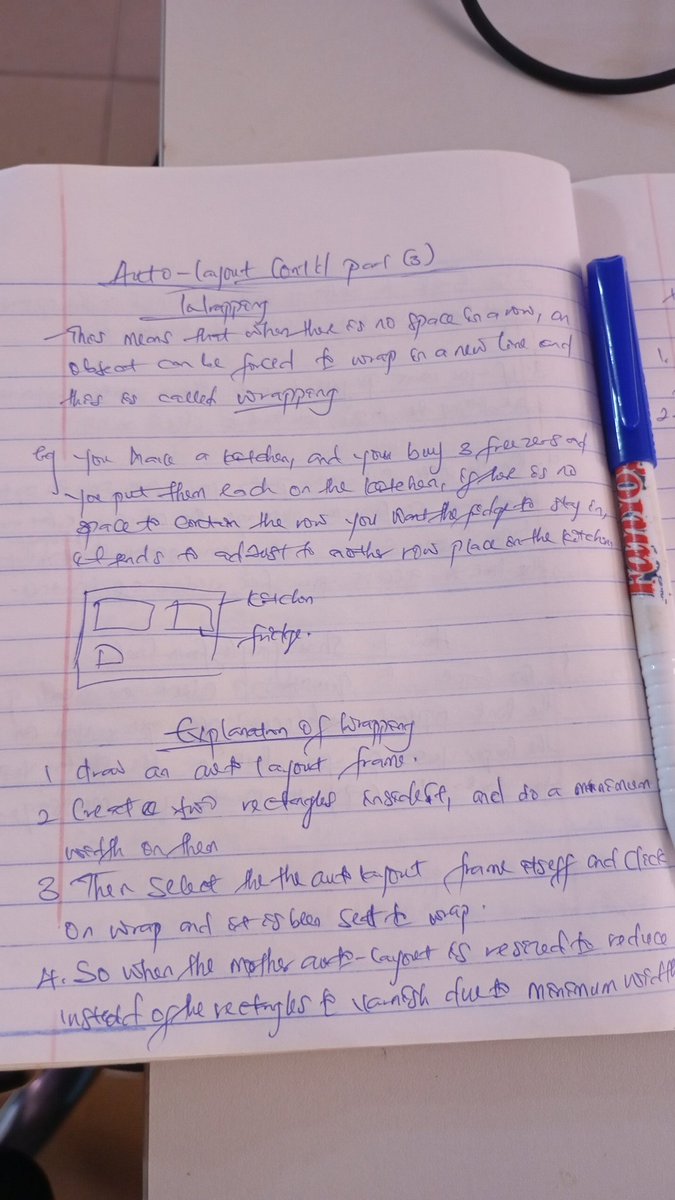 Auto-layout Cont'd part (3)
Wrapping
- This means that when there is no space in a row, an
object can be forced to wrap in a new line and
this is called wrapping
Eg you have a kitchen, and you buy 3 freezers and
you put them each on the kitchen, if there is no
space to contain the row you want the fridge to stay in,
it ends to adjust to another row place in the kitchen
kitchen
fridge.
Explanation of Wrapping
1 draw an auto layout frame.
2 Create two rectangles inside it, and do a minimum
width on them
3 Then select the the auto layout frame itself and Click
On wrap and it is been set to wrap.
4. So when the mother auto-layout is resized to reduce
instead of the rectangles to vanish due to minimum width
1.
2.